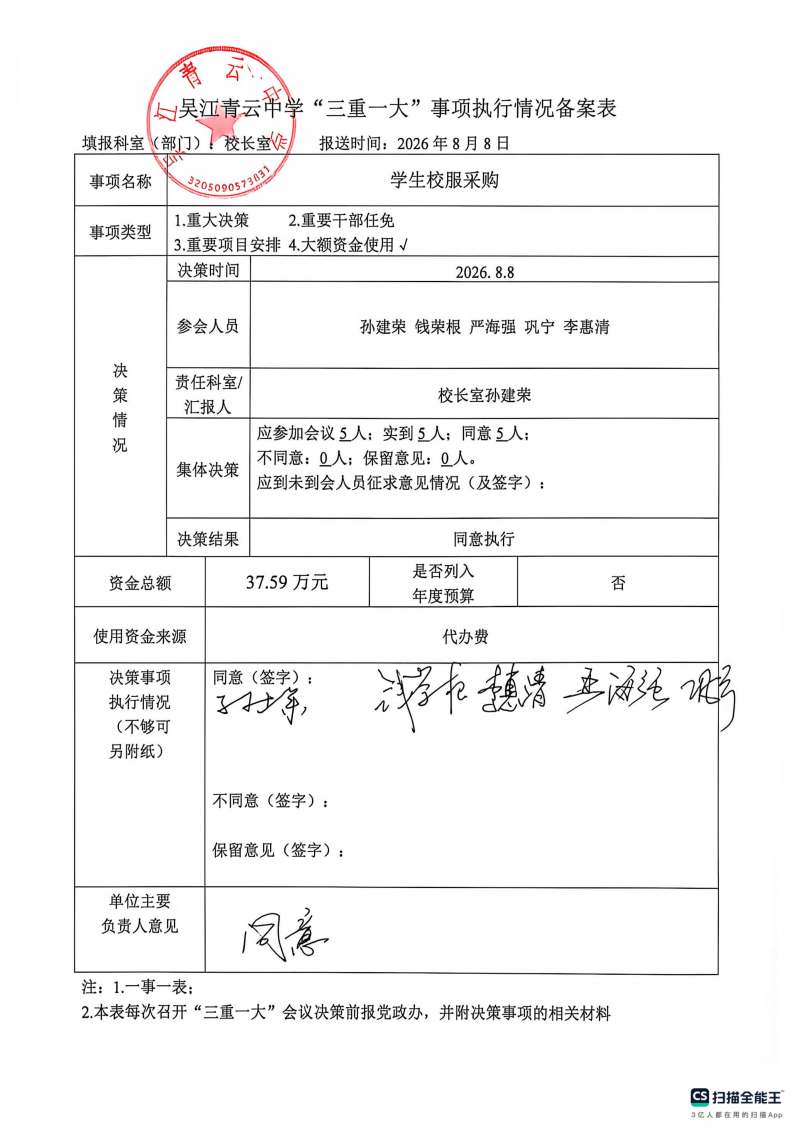 吴江青云中学
3205090573831
吴江青云中学“三重一大”事项执行情况备案表
填报科室（部门）：校长室 报送时间：2026 年 8 月 8 日
事项名称 学生校服采购
事项类型 1.重大决策 2.重要干部任免
3.重要项目安排 4.大额资金使用√
决策情况
决策时间 2026.8.8
参会人员 孙建荣 钱荣根 严海强 巩宁 李惠清
责任科室/
汇报人 校长室孙建荣
集体决策 应参加会议 5 人；实到 5 人；同意 5 人；
不同意：0 人；保留意见：0 人。
应到未到会人员征求意见情况（及签字）：
决策结果 同意执行
资金总额 37.59 万元 是否列入
年度预算 否
使用资金来源 代办费
决策事项
执行情况
（不够可
另附纸）
同意（签字）：
孙建荣 钱荣根 李惠清 严海强 巩宁
不同意（签字）：
保留意见（签字）：
单位主要
负责人意见
同意
注：1.一事一表；
2.本表每次召开“三重一大”会议决策前报党政办，并附决策事项的相关材料
CS 扫描全能王™
3亿人都在用的扫描App